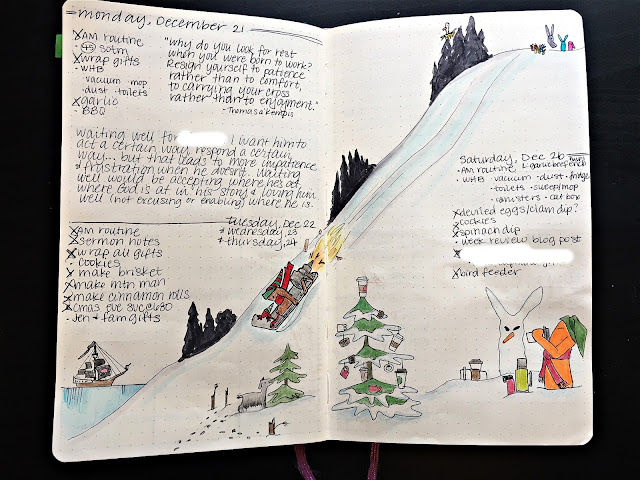 monday, December 21
xAM routine
· 45 sotm
xwrap gifts
· WHB
vacuum · mop
· dust · toilets
xgarlic
BBQ
"why do you look for rest
when you were born to work?
Resign yourself to patience
rather than to comfort,
to carrying your cross
rather than to enjoyment."
- Thomas a Kempis
waiting well for I want him to
act a certain way, respond a certain
way... but that leads to more impatience
& frustration when he doesn't. Waiting
well would be accepting where he's at,
where God is at in his story & loving him
well (not excusing or enabling) where he is.
Tuesday, Dec 22
& wednesday, 23
& thursday, 24
xAM routine
xsermon notes
xwrap all gifts
· cookies
x make brisket
xmake mtn man
xmake cinnamon rolls
xcmas eve svc@630
· Jen & fam gifts
Saturday, Dec 26
· AM routine
· WHB · vacuum · dust · fridge
· toilets · sweep/mop
· canisters · cat box
xdeviled eggs/clam dip?
xcookies
xspinach dip
· week review blog post
x
xbird feeder